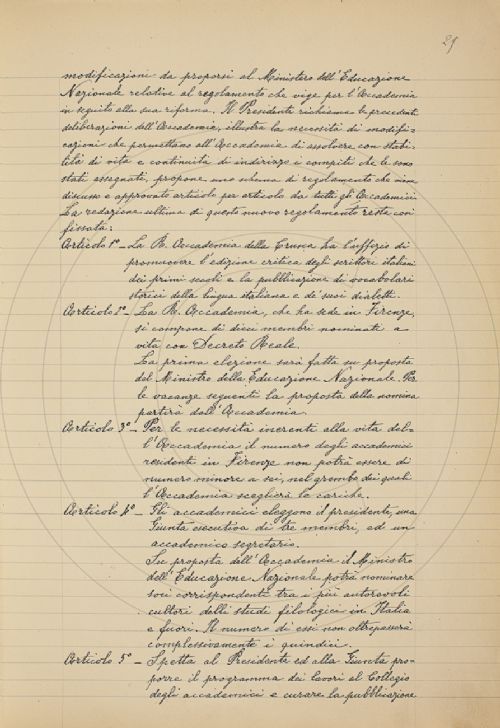 29
modificazioni da proporsi al Ministero dell'Educazione
Nazionale relative al regolamento che vige per l'Accademia
in seguito alla sua riforma. Il Presidente richiama le precedenti
deliberazioni dell'Accademia, illustra la necessità di modifi-
cazioni che permettano all'Accademia di assolvere con stabi-
lità di vita e continuità di indirizzo i compiti che le sono
stati assegnati, propone uno schema di regolamento che viene
discusso e approvato articolo per articolo da tutti gli Accademici.
La redazione ultima di questo nuovo regolamento resta così
fissata:
Articolo 1º - La R. Accademia della Crusca ha l'ufficio di
promuovere l'edizione critica degli scrittori italiani
dei primi secoli e la pubblicazione di vocabolari
storici della lingua italiana e de' suoi dialetti.
Articolo 2º - La R. Accademia, che ha sede in Firenze,
si compone di dieci membri nominati a
vita con Decreto Reale.
La prima elezione sarà fatta su proposta
del Ministro della Educazione Nazionale. Per
le vacanze seguenti la proposta della nomina
partirà dall'Accademia.
Articolo 3º - Per le necessità inerenti alla vita del-
l'Accademia il numero degli accademici
residenti in Firenze non potrà essere di
numero minore a sei, nel grembo dei quali
l'Accademia sceglierà le cariche.
Articolo 4º - Gli accademici eleggono il presidente, una
Giunta esecutiva di tre membri, ed un
accademico segretario.
Su proposta dell'Accademia il Ministro
dell'Educazione Nazionale potrà nominare
soci corrispondenti tra i più autorevoli
cultori delli studi filologici in Italia
e fuori. Il numero di essi non oltrepasserà
complessivamente i quindici.
Articolo 5º - Spetta al Presidente ed alla Giunta pro-
porre il programma dei lavori al Collegio
degli accademici e curare la pubblicazione